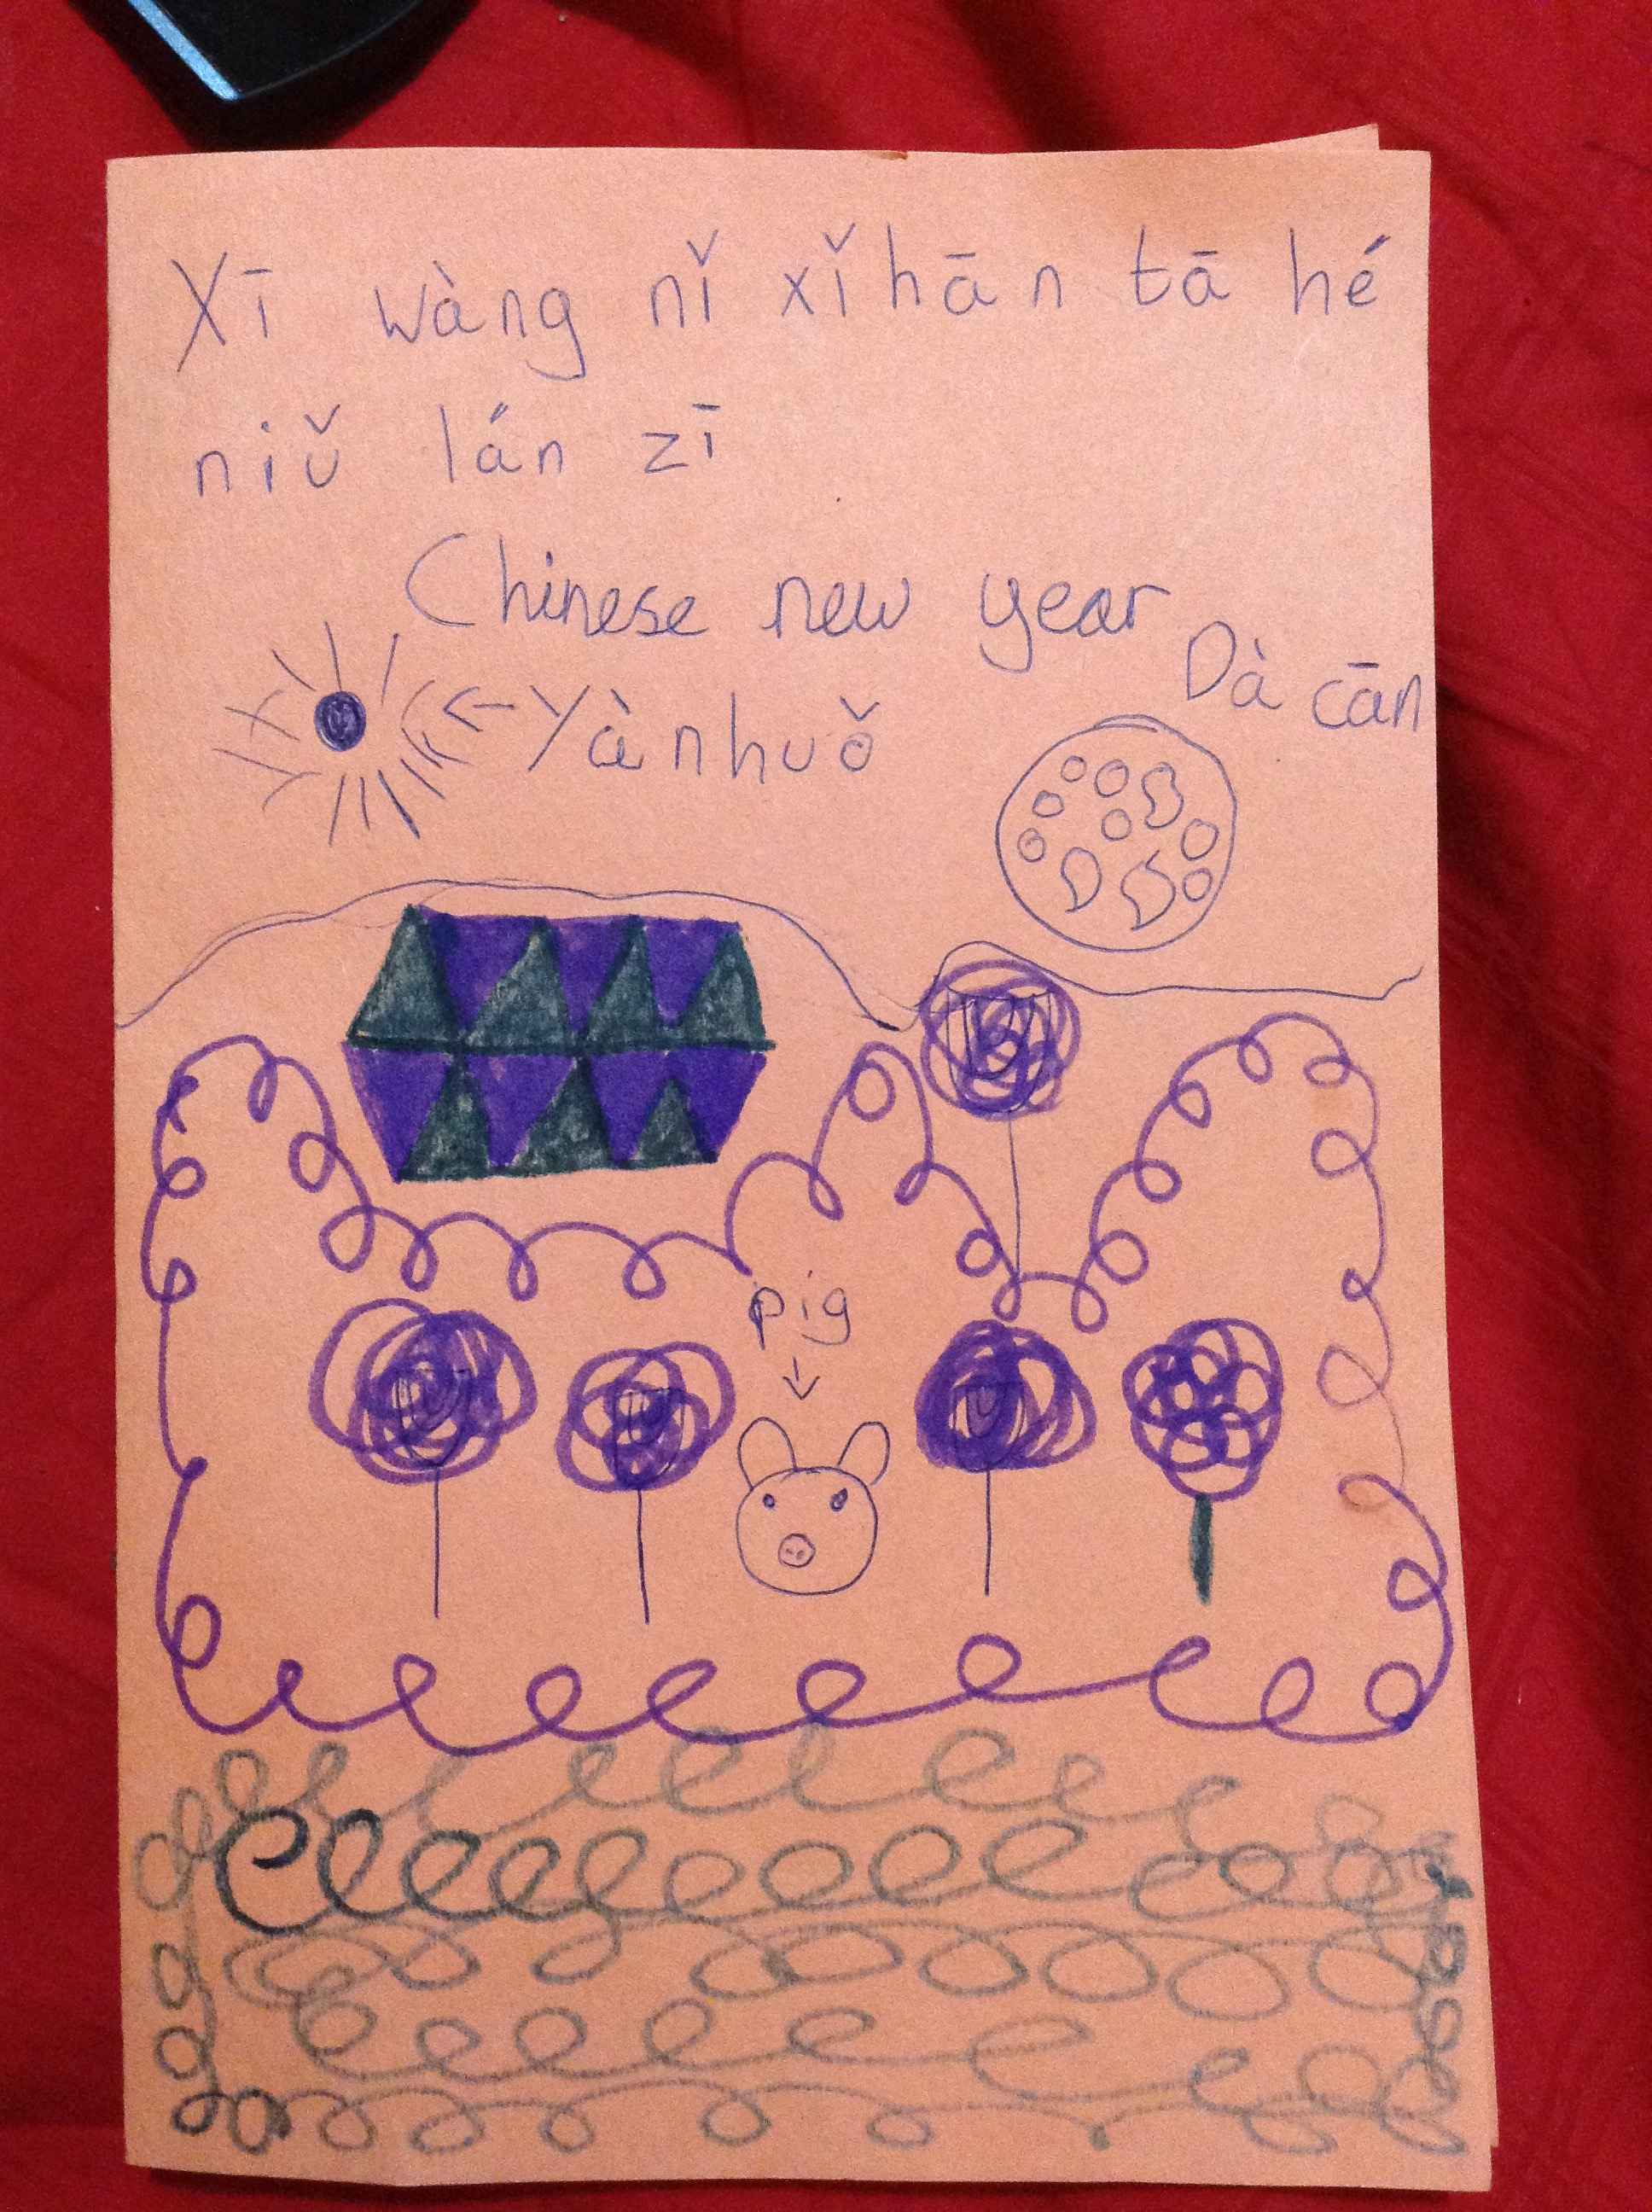 Xī wàng nǐ xǐhān tā hé
niǔ lán zī
Chinese new year
Dà cān
Yànhuǒ
pig